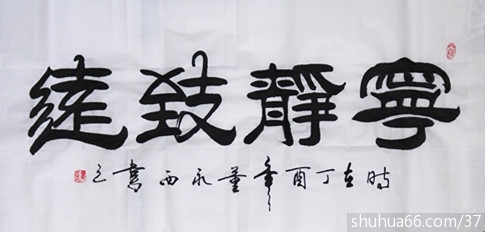 寧靜致遠
時在丁酉年董永西書之
shuhua66.com/37